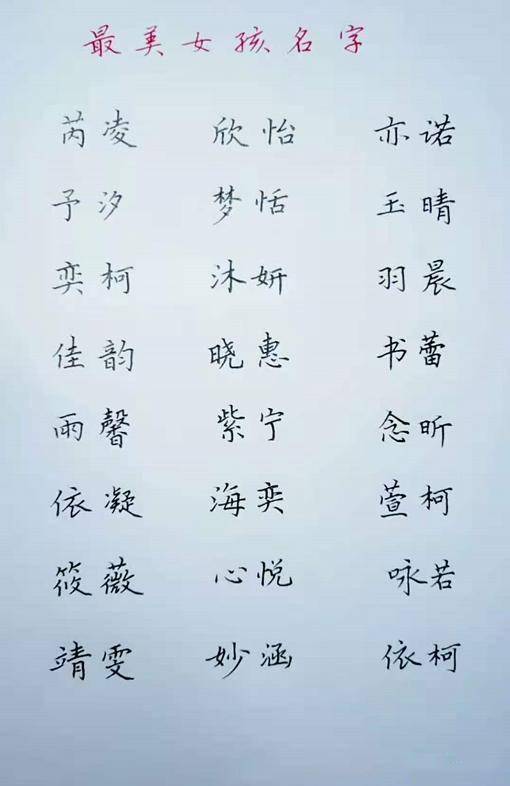 最美女孩名字
芮凌 欣怡 亦诺
予汐 梦恬 玉晴
奕柯 沐妍 羽晨
佳韵 晓惠 书蕾
雨馨 紫宁 念昕
依凝 海奕 萱柯
筱薇 心悦 咏若
靖雯 妙涵 依柯